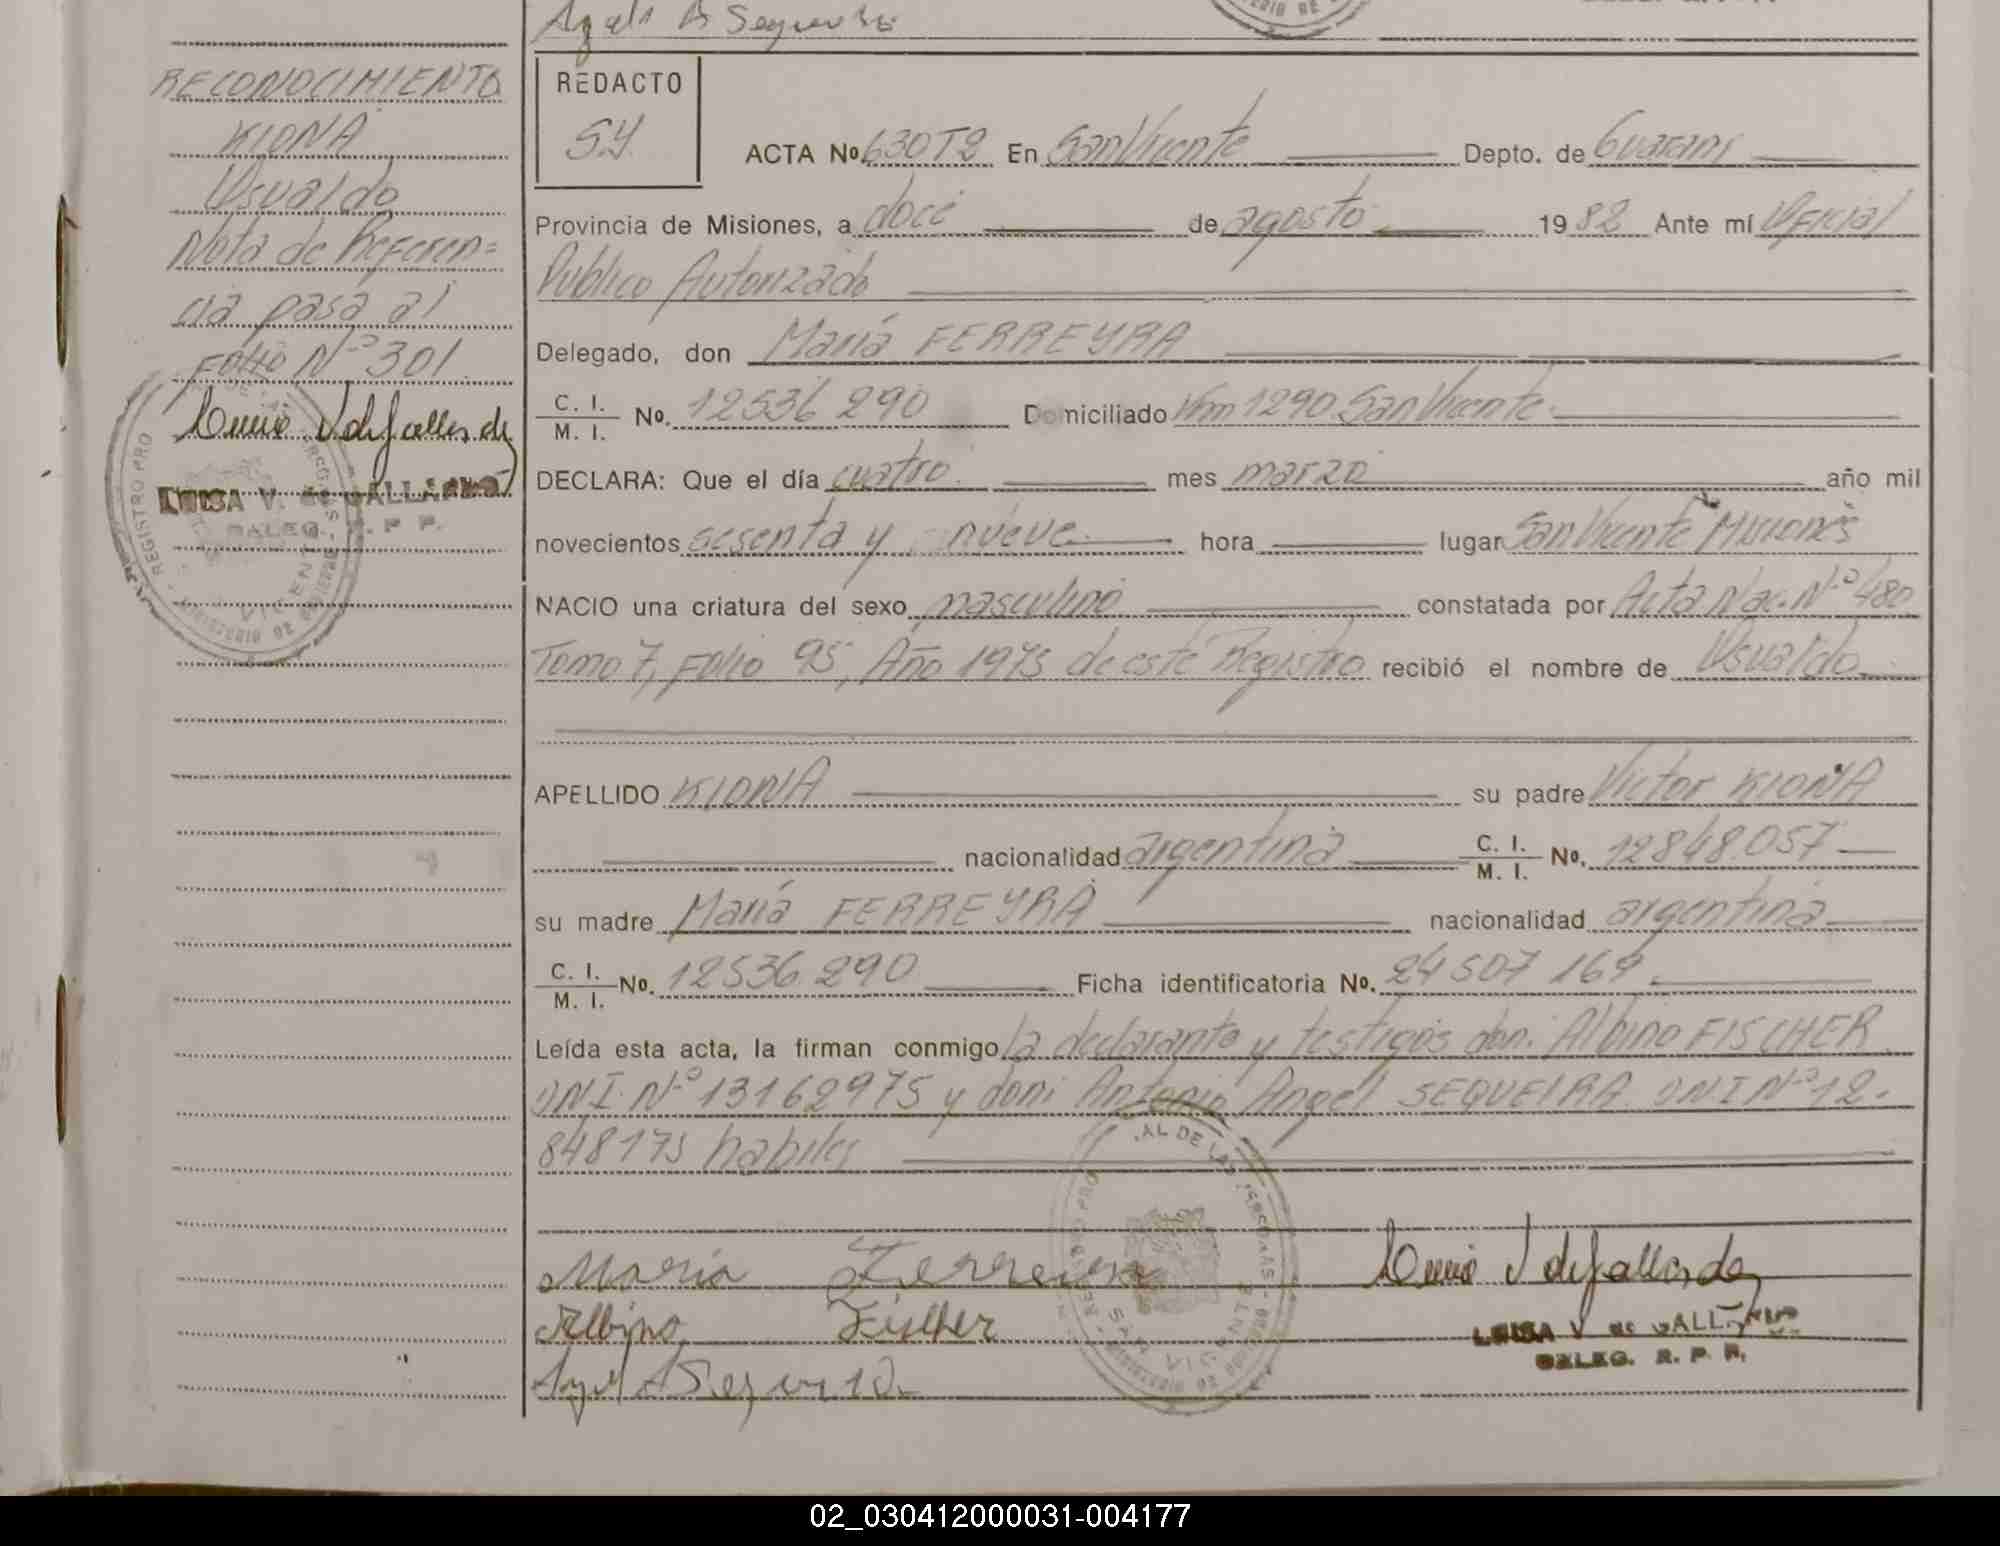 RECONOCIMIENTO
KIONA
Usualdo
Nota de Referen=
cia pasa al
Folio Nº 301
LUISA V. de GALLARDO
DELEG. R. P. P.
REDACTO
S.Y.
ACTA No 630T2 En San Vicente Depto. de Guaraní
Provincia de Misiones, a doce de agosto 1982 Ante mí Oficial
Publico Autorizado
Delegado, don María FERREYRA
C. I. / M. I. No. 12536 290 Domiciliado Km 1290 San Vicente.
DECLARA: Que el día cuatro mes marzo año mil
novecientos sesenta y nueve hora lugar San Vicente Misiones
NACIO una criatura del sexo masculino constatada por Acta Nac. Nº 480
Tomo 7, Folio 95, Año 1975 de este Registro recibió el nombre de Usualdo
APELLIDO KIONA su padre Victor KIONA
nacionalidad argentina C. I. / M. I. No. 12848.057
su madre María FERREYRA nacionalidad argentina
C. I. / M. I. No. 12536.290 Ficha identificatoria No. 24 507 169
Leída esta acta, la firman conmigo la declarante y testigos don: Albino FISCHER
DNI. Nº 13162975 y don: Antonio Angel SEQUEIRA DNI Nº 12.
848175 habiles
María Ferreira
Albino Fischer
LUISA V de GALLARDO
DELEG. R. P. P.
SAN VICENTE
02_030412000031-004177